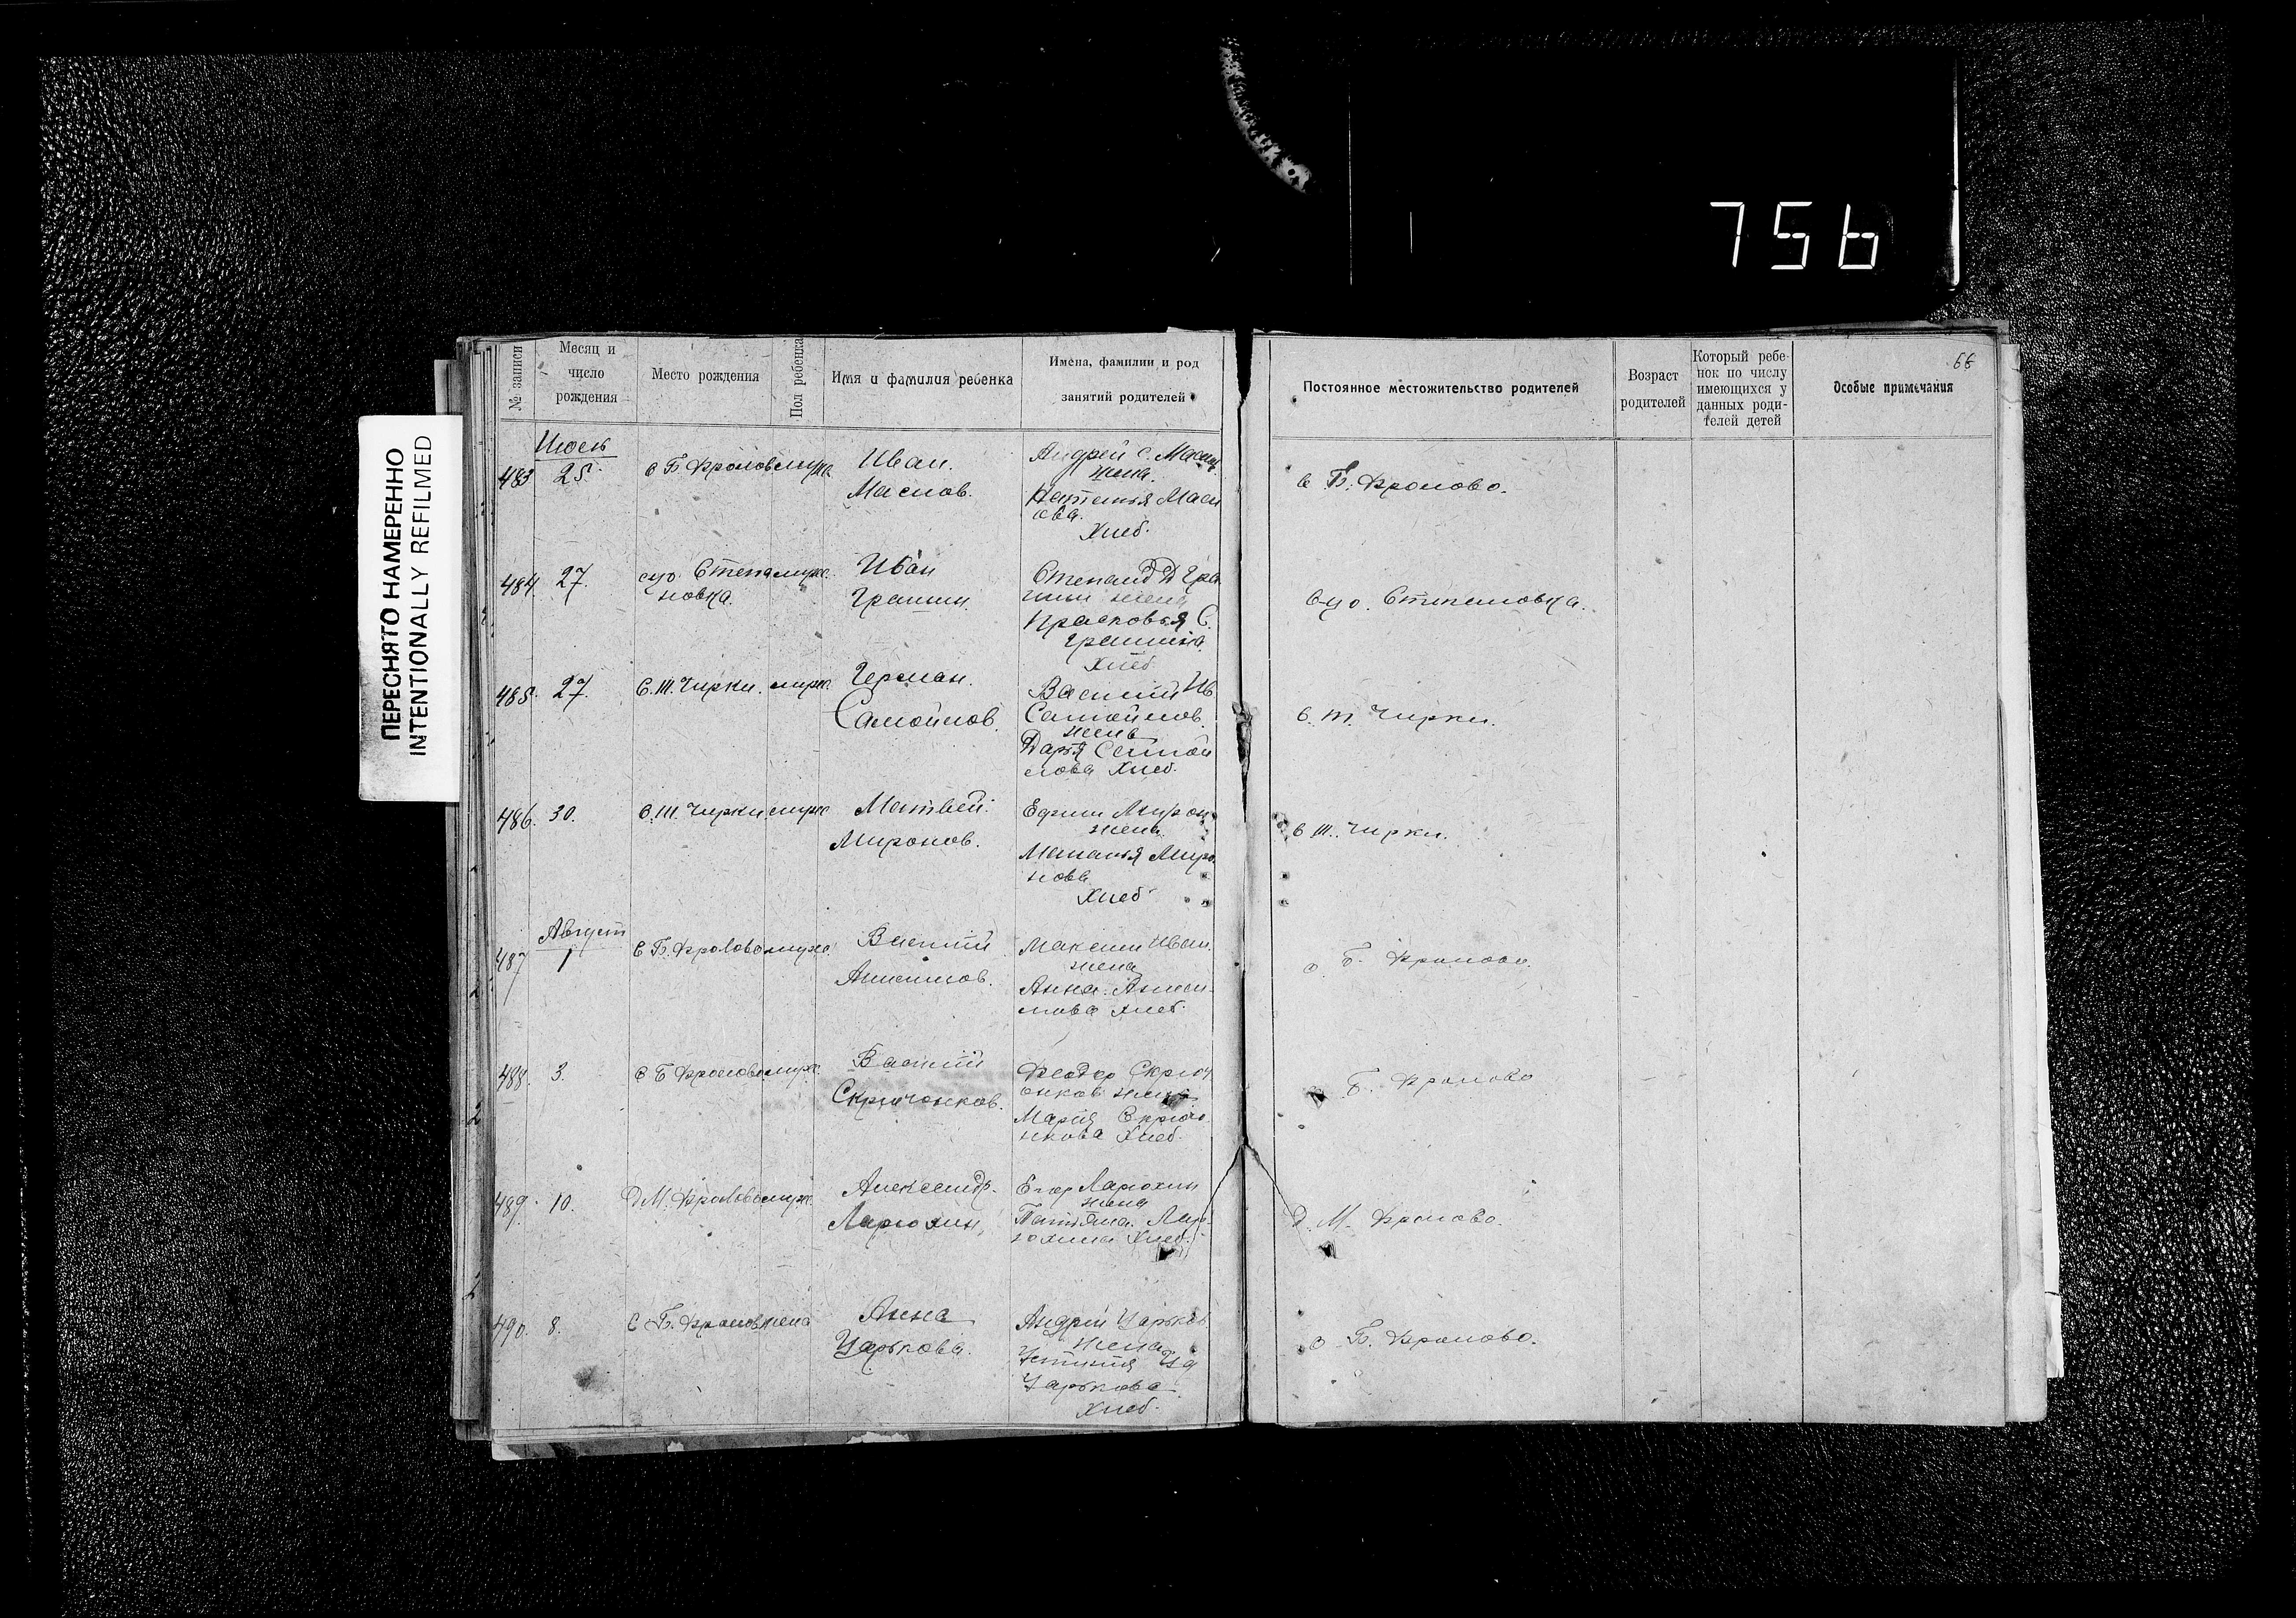 756
ПЕРЕСНЯТО НАМЕРЕННО
INTENTIONALLY REFILMED
№ записи
Месяц и
число
рождения
Место рождения
Пол ребенка
Имя и фамилия ребенка
Имена, фамилии и род
занятий родителей
Постоянное местожительство родителей
Возраст
родителей
Который ребе-
нок по числу
имеющихся у
данных роди-
телей детей
Особые примечания
Июль
483 25. с Б Фролов муж.
Иван.
Маслов.
Андрей С. Масл
жена.
Наталья Масл
ова.
Хлеб.
с Б. Фролово.
484. 27. Степа муж.
новка.
Иван
Грашин.
Степан Д Гра
шин жена
Прасковья С.
Грашина
Хлеб
Степановка.
485. 27. С. Ш. Чирки. муж.
Герман.
Самойлов.
Василий Ив
Самойлов.
жена
Дарья Самой
лова Хлеб.
с. Ш. Чирки.
486. 30. с. Ш. Чирки муж
Матвей.
Миронов.
Ефим Мирон
жена.
Маланья Миро
нова
Хлеб
с Ш. Чирки.
Август
487 1 с Б. Фролово муж
Василий
Анисимов.
Максим Иван.
жена
Анна Аниси
мова хлеб.
с. Б. Фролово.
488. 3. с Б Фролово муж.
Василий
Скрючонков.
Феодор Скрюч
онков жена
Мария Скрючо
нкова Хлеб.
Б. Фролово
489. 10. Д М. Фролово муж
Александр.
Ларюхин.
Егор Ларюхин
жена
Татьяна Лар
юхина Хлеб.
д. М. Фролово.
490. 8. с Б. Фролов жена
Анна
Царькова.
Андрей Царьков
жена
Устинья
Царькова
Хлеб.
с Б. Фролово.